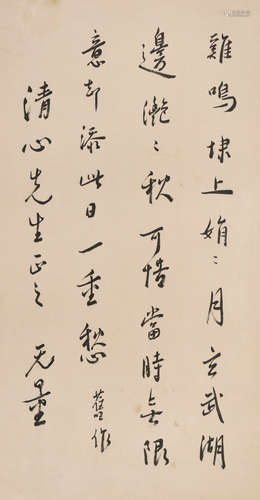 雞鳴埭上娟〻月玄武湖
邊灔〻秋可惜當時無限
意却添此日一重愁 舊作
清心先生正之 无量